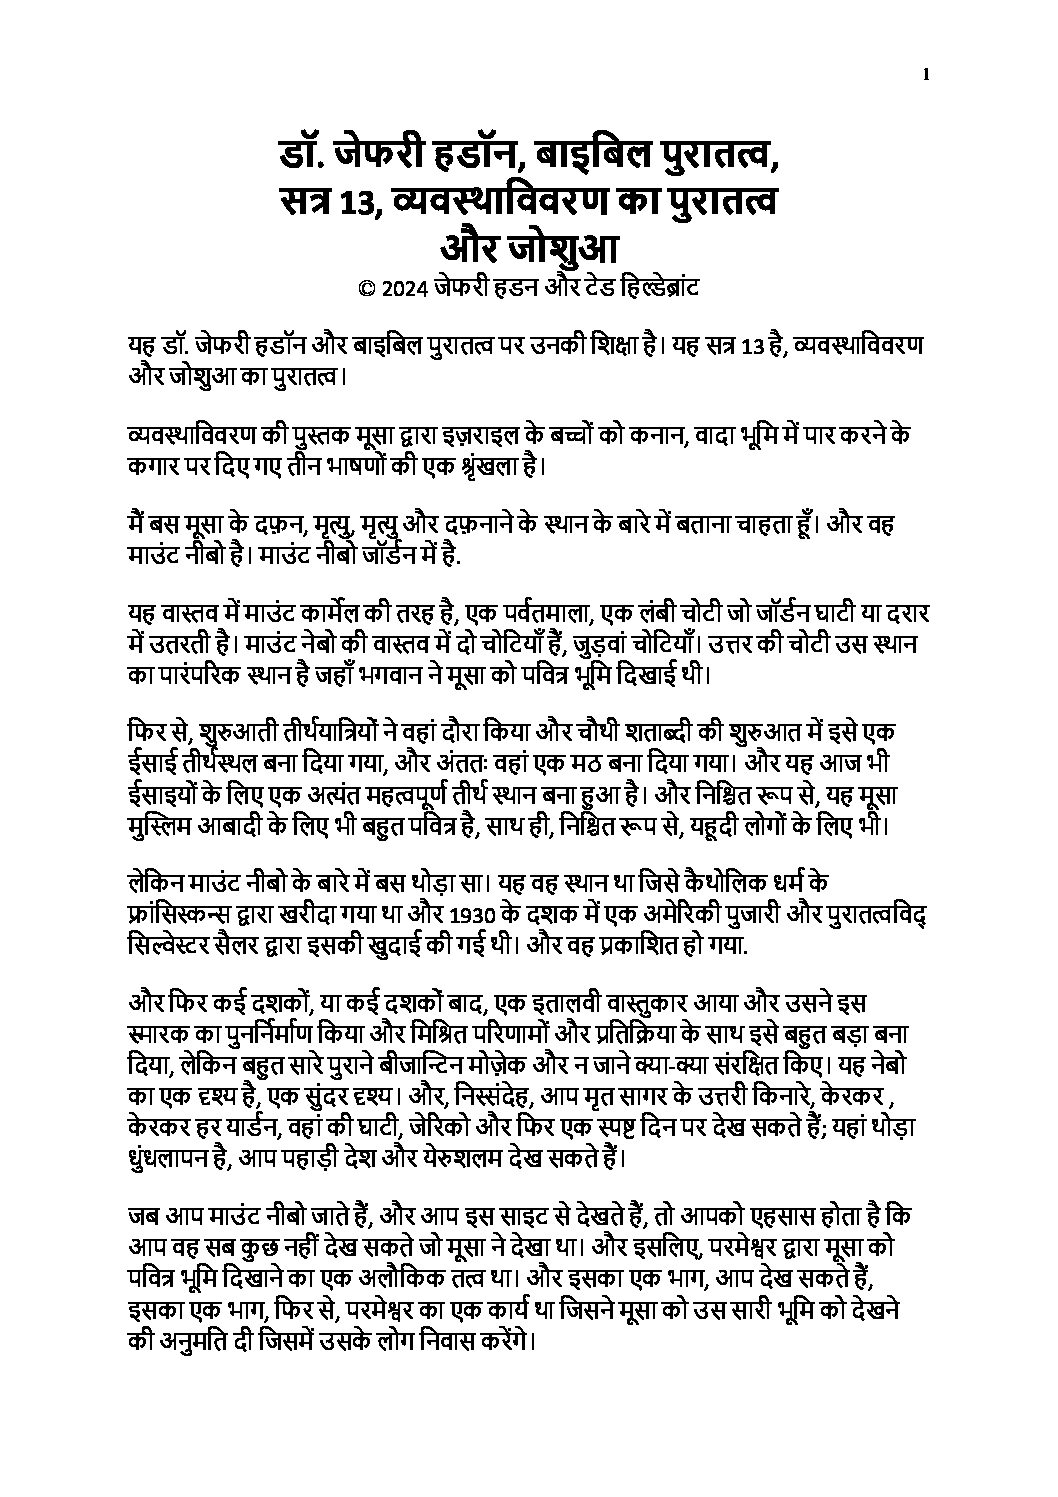 1
डॉ. जेफरी हडॉन, बाइबिल पुरातत्व,
सत्र 13, व्यवस्थाविवरण का पुरातत्व
और जोशुआ
© 2024 जेफरी हडन और टेड हिल्डेब्रांट
यह डॉ. जेफरी हडॉन और बाइबिल पुरातत्व पर उनकी शिक्षा है। यह सत्र 13 है, व्यवस्थाविवरण
और जोशुआ का पुरातत्व।
व्यवस्थाविवरण की पुस्तक मूसा द्वारा इज़राइल के बच्चों को कनान, वादा भूमि में पार करने के
कगार पर दिए गए तीन भाषणों की एक श्रृंखला है।
मैं बस मूसा के दफ़न, मृत्यु, मृत्यु और दफ़नाने के स्थान के बारे में बताना चाहता हूँ। और वह
माउंट नीबो है। माउंट नीबो जॉर्डन में है.
यह वास्तव में माउंट कार्मेल की तरह है, एक पर्वतमाला, एक लंबी चोटी जो जॉर्डन घाटी या दरार
में उतरती है। माउंट नेबो की वास्तव में दो चोटियाँ हैं, जुड़वां चोटियाँ। उत्तर की चोटी उस स्थान
का पारंपरिक स्थान है जहाँ भगवान ने मूसा को पवित्र भूमि दिखाई थी।
फिर से, शुरुआती तीर्थयात्रियों ने वहां दौरा किया और चौथी शताब्दी की शुरुआत में इसे एक
ईसाई तीर्थस्थल बना दिया गया, और अंततः वहां एक मठ बना दिया गया। और यह आज भी
ईसाइयों के लिए एक अत्यंत महत्वपूर्ण तीर्थ स्थान बना हुआ है। और निश्चित रूप से, यह मूसा
मुस्लिम आबादी के लिए भी बहुत पवित्र है, साथ ही, निश्चित रूप से, यहूदी लोगों के लिए भी।
लेकिन माउंट नीबो के बारे में बस थोड़ा सा। यह वह स्थान था जिसे कैथोलिक धर्म के
फ्रांसिस्कन्स द्वारा खरीदा गया था और 1930 के दशक में एक अमेरिकी पुजारी और पुरातत्वविद्
सिल्वेस्टर सैलर द्वारा इसकी खुदाई की गई थी। और वह प्रकाशित हो गया.
और फिर कई दशकों, या कई दशकों बाद, एक इतालवी वास्तुकार आया और उसने इस
स्मारक का पुनर्निर्माण किया और मिश्रित परिणामों और प्रतिक्रिया के साथ इसे बहुत बड़ा बना
दिया, लेकिन बहुत सारे पुराने बीजान्टिन मोज़ेक और न जाने क्या-क्या संरक्षित किए। यह नेबो
का एक दृश्य है, एक सुंदर दृश्य। और, निस्संदेह, आप मृत सागर के उत्तरी किनारे, केरकर ,
केरकर हर यार्डन, वहां की घाटी, जेरिको और फिर एक स्पष्ट दिन पर देख सकते हैं; यहां थोड़ा
धुंधलापन है, आप पहाड़ी देश और येरुशलम देख सकते हैं।
जब आप माउंट नीबो जाते हैं, और आप इस साइट से देखते हैं, तो आपको एहसास होता है कि
आप वह सब कुछ नहीं देख सकते जो मूसा ने देखा था। और इसलिए, परमेश्वर द्वारा मूसा को
पवित्र भूमि दिखाने का एक अलौकिक तत्व था। और इसका एक भाग, आप देख सकते हैं,
इसका एक भाग, फिर से, परमेश्वर का एक कार्य था जिसने मूसा को उस सारी भूमि को देखने
की अनुमति दी जिसमें उसके लोग निवास करेंगे।